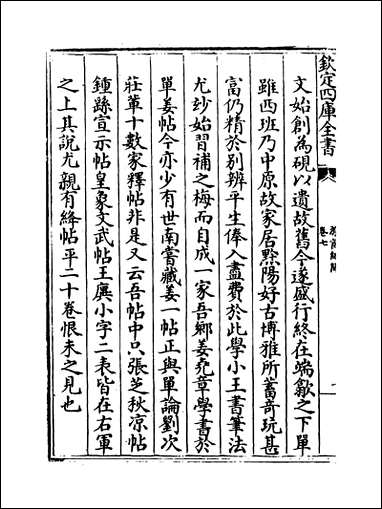 欽定四庫全書
卷七
文始創為硯以遺故舊今遂盛行終在端歙之下單
雖西班乃中原故家居黔陽好古博雅所蓄奇玩甚
富仍精於别辨平生俸入盡費於此學小王書筆法
尤妙始習補之梅而自成一家吾鄉姜堯章學書於
單姜帖今亦少有世南嘗藏姜一帖正與單論劉次
莊輩十數家釋帖非是又云吾帖中只張芝秋涼帖
鍾繇宣示帖皇象文武帖王廙小字二表皆在右軍
之上其説尤親有絳帖平二十卷恨未之見也